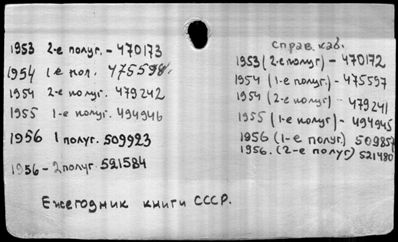 1953 2-е полуг. - 470173
1954 1 е пол. 475598.
1954 2-е полуг. 479242
1955 1-е полуг. 494946
1956 1 полуг. 509923
1956 - 2 полуг. 521584
справ. каб.
1953 (2-е полуг) - 470172
1954 (1-е полуг.) - 475597
1954 (2-е полуг) - 479241
1955 (1-е полуг) - 494945
1956 (1-е полуг) 509857
1956. (2-е полуг) 521480
Ежегодник книги СССР.